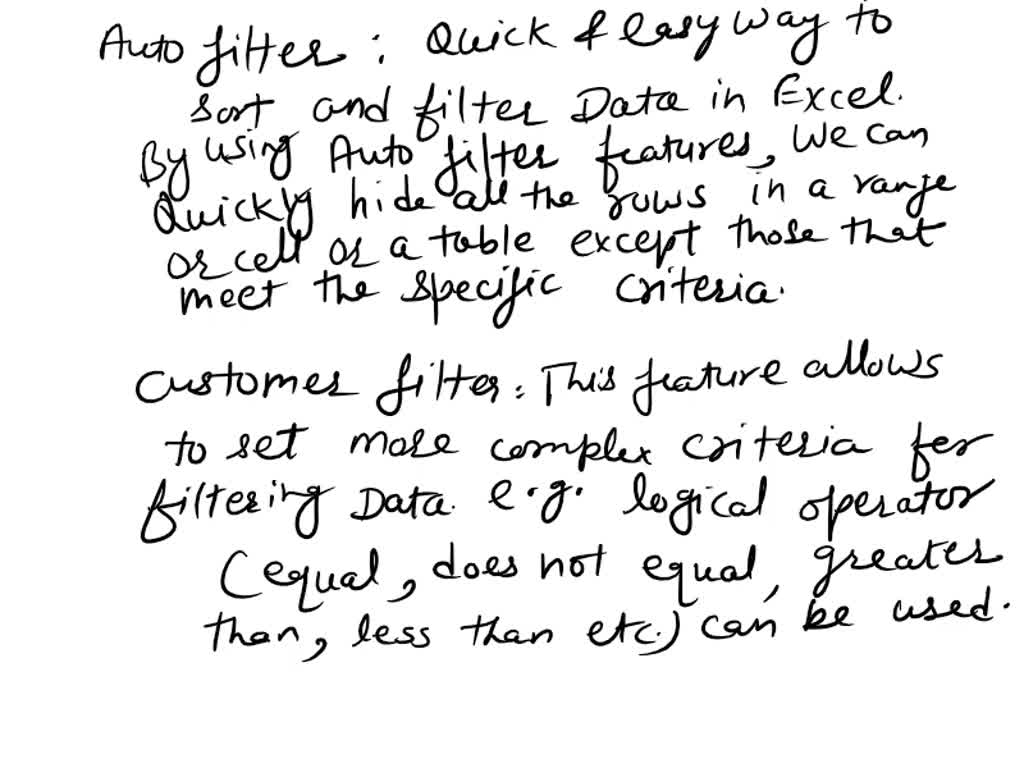 Auto filter : Quick & easy way to
sort and filter Data in Excel.
By using Auto filter features, We can
Quickly hide all the rows in a range
or cell or a table except those that
meet the specific criteria.
Customer filter : This feature allows
to set more complex criteria for
filtering Data. e.g. logical operator
(equal, does not equal, greater
than, less than etc.) can be used.